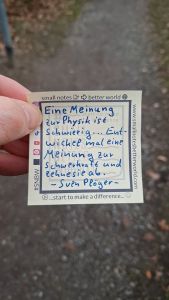 small notes → better world
Eine Meinung
zur Physik ist
Schwierig... Ent-
wickel mal eine
Meinung zur
Schwerkraft und
lehne sie ab.
- Sven Plöger -
...start to make a difference...
#SNBW